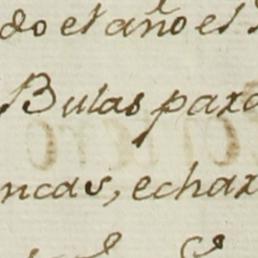 do el año el
Bulas para
ncas, echar